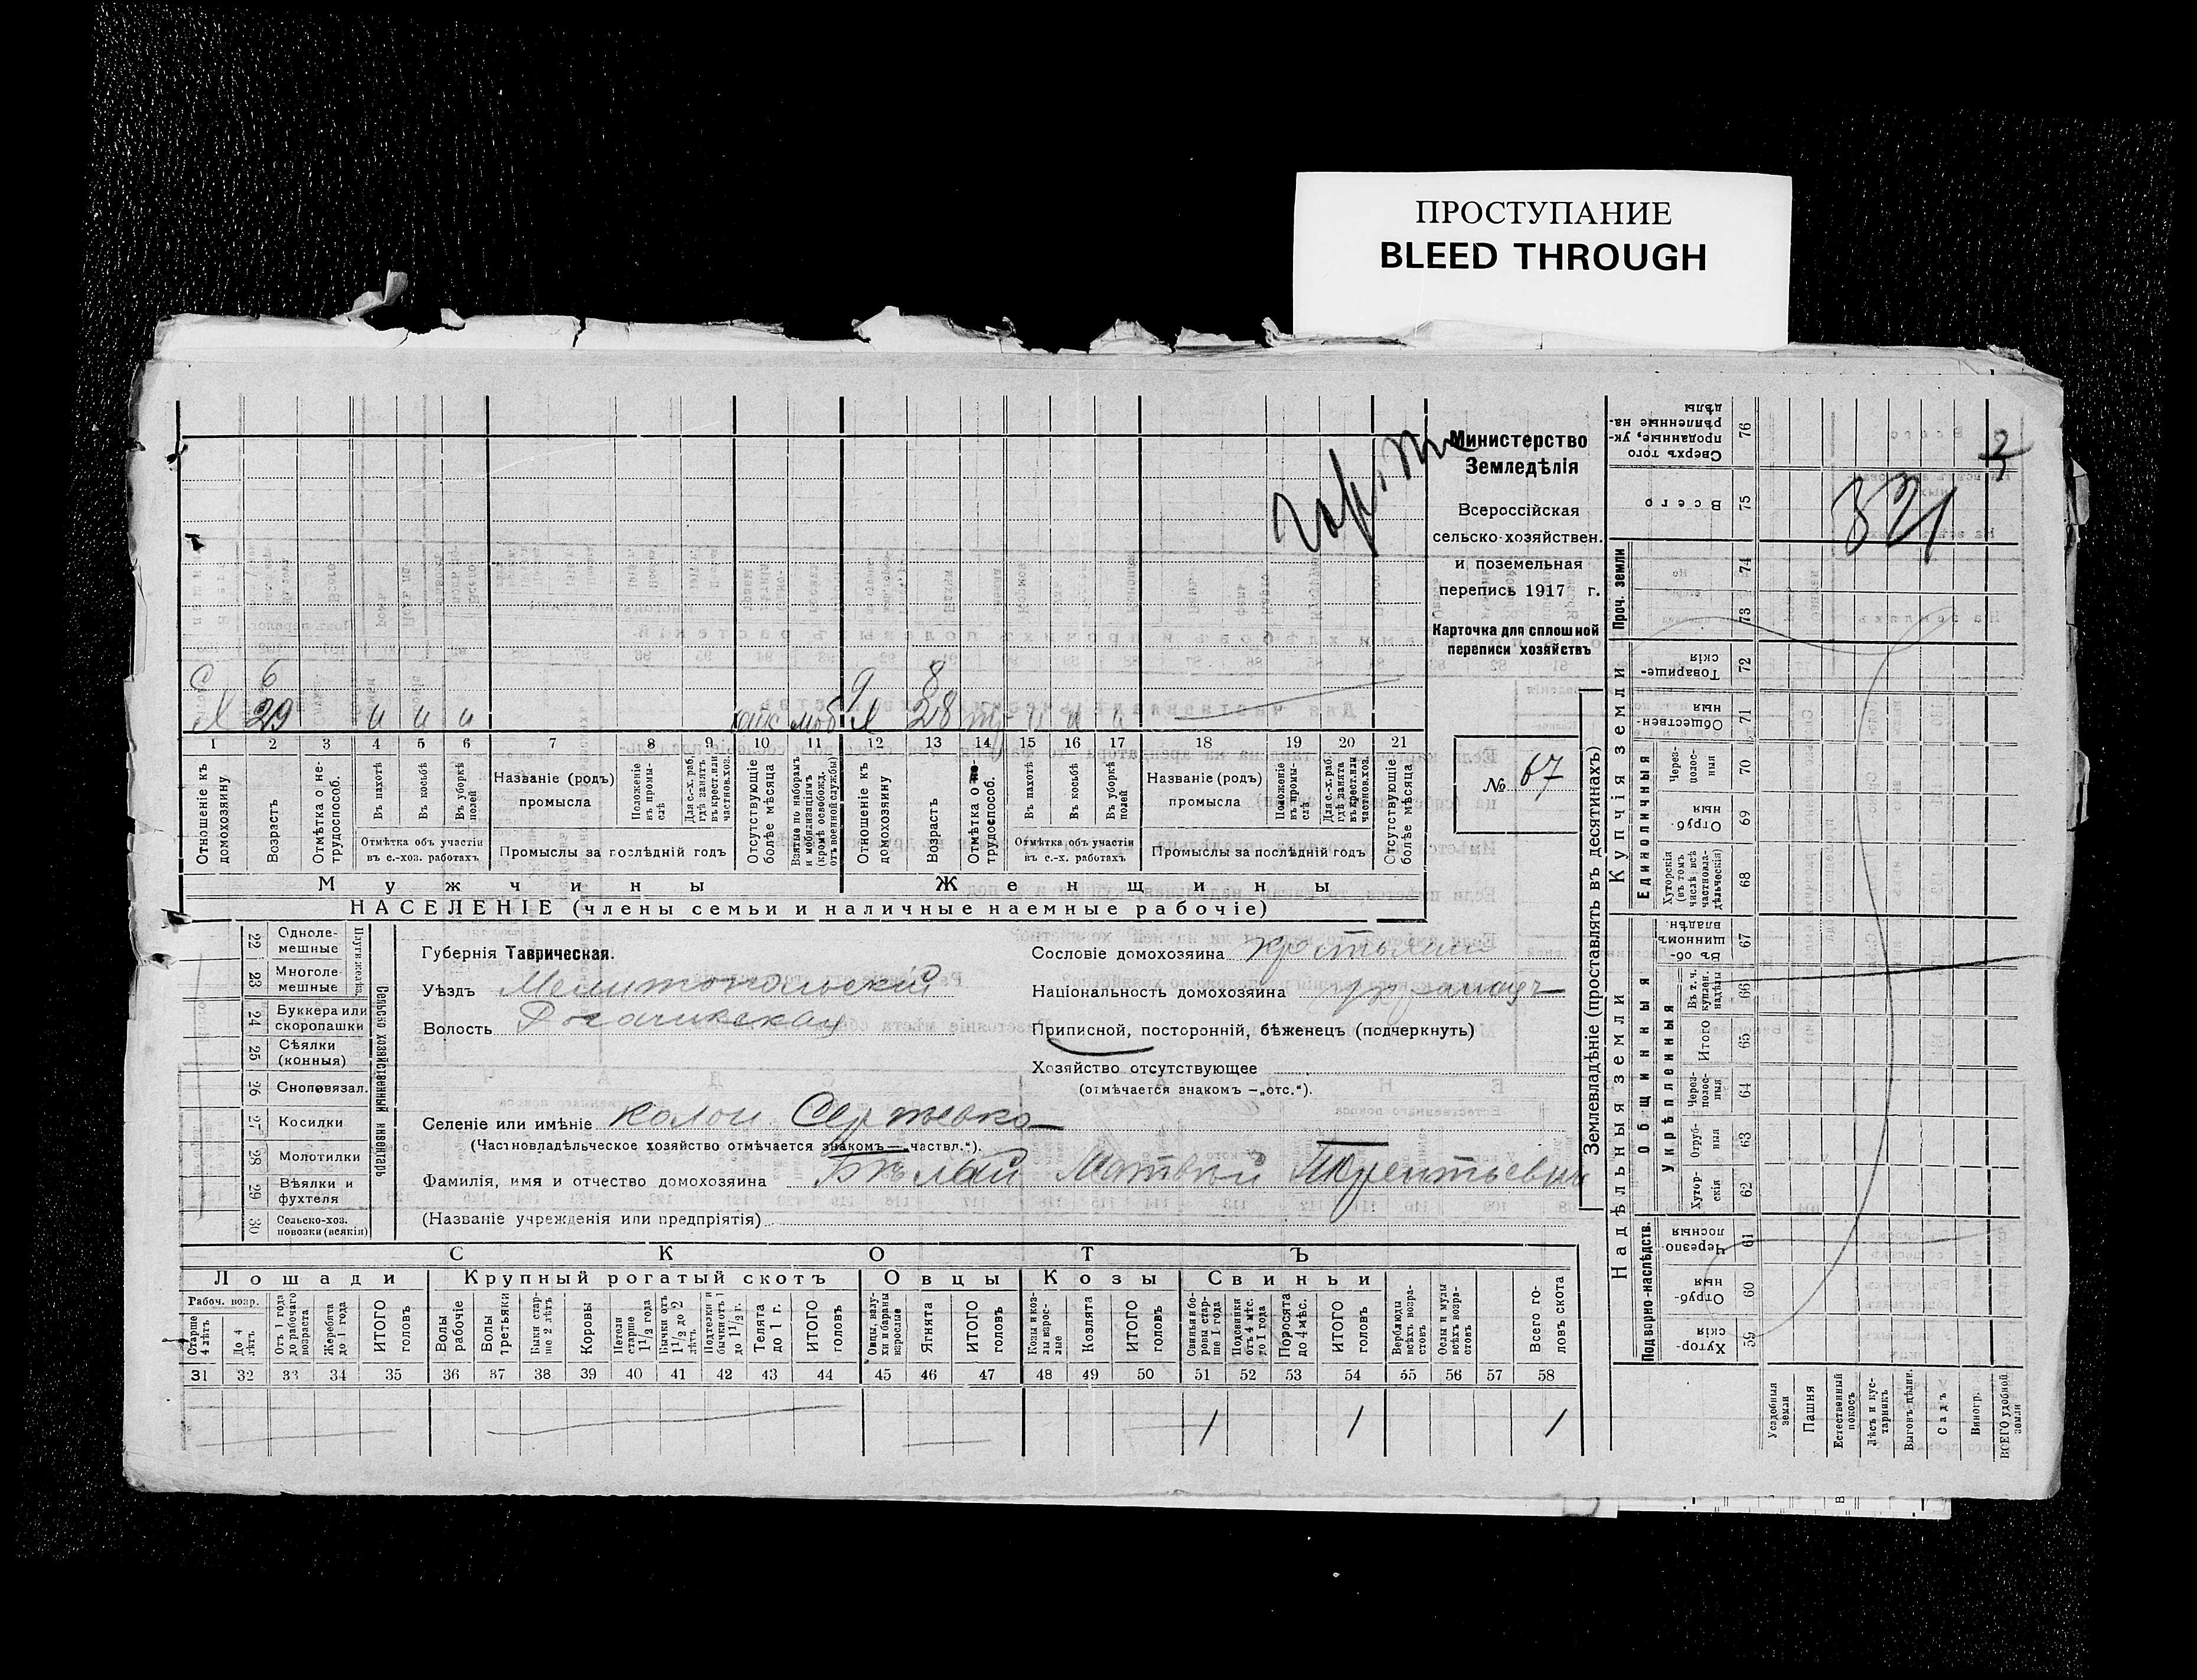 ПРОСТУПАНИЕ
BLEED THROUGH
Министерство
Земледѣлія
Всероссійская
сельско-хозяйствен.
и поземельная
перепись 1917 г.
Карточка для сплошной
переписи хозяйствъ
№ 67
321
С 6 9 8
Х 29 и и и отс моб Х 28 и и и
1 2 3 4 5 6 7 8 9 10 11 12 13 14 15 16 17 18 19 20 21
Отношеніе къ домохозяину
Возрастъ
Отмѣтка о нетрудоспособ.
Въ пахотѣ
Въ косьбѣ
Въ уборкѣ полей
Отмѣтка объ участіи
въ с.-хоз. работахъ
Названіе (родъ)
промысла
Положеніе въ промыслѣ
Для с.-х. раб. гдѣ занятъ въ крест. или частнов. хоз.
Промыслы за послѣдній годъ
Отсутствующіе болѣе мѣсяца
Взятые по наборамъ и мобилизаціямъ (кромѣ освобожд. отъ военной службы)
Отношеніе къ домохозяину
Возрастъ
Отмѣтка о нетрудоспособ.
Въ пахотѣ
Въ косьбѣ
Въ уборкѣ полей
Отмѣтка объ участіи
въ с.-х. работахъ
Названіе (родъ)
промысла
Положеніе въ промыслѣ
Для с.-х. раб. гдѣ занята въ крест. или частнов. хоз.
Промыслы за послѣдній годъ
Отсутствующіе болѣе мѣсяца
Мужчины Женщины
НАСЕЛЕНІЕ (члены семьи и наличные наемные рабочіе)
22 Однолемешные
23 Многолемешные
Плуги желѣзн.
24 Буккера или скоропашки
25 Сѣялки (конныя)
26 Сноповязал.
27 Косилки
28 Молотилки
29 Вѣялки и фухтеля
30 Сельско-хоз. повозки (всякія)
Сельско хозяйственный инвентарь
Губернія Таврическая.
Уѣздъ Мелитопольскій
Волость Рогачикская
Селеніе или имѣніе колон. Сергѣевка
(Частновладѣльческое хозяйство отмѣчается знакомъ — „частвл.“).
Фамилія, имя и отчество домохозяина Бѣлый Матвѣй Терентьевичъ
(Названіе учрежденія или предпріятія)
Сословіе домохозяина
Національность домохозяина
Приписной, посторонній, бѣженецъ (подчеркнуть)
Хозяйство отсутствующее
(отмѣчается знакомъ — „отс.“).
СКОТЪ
Лошади Крупный рогатый скотъ Овцы Козы Свиньи
Рабоч. возр.
Старше 4 лѣтъ
До 4 лѣтъ
Отъ 1 года до рабочаго возраста
Жеребята до 1 года
ИТОГО головъ
Волы рабочіе
Волы третьяки
Быки старше 2 лѣтъ
Коровы
Нетели старше 1 1/2 года
Бычки отъ 1 1/2 до 2 лѣтъ
Подтелки и бычки отъ 1 до 1 1/2 г.
Телята до 1 г.
ИТОГО головъ
Овцы, валухи и бараны взрослые
Ягнята
ИТОГО головъ
Козы и козлы взрослые
Козлята
ИТОГО головъ
Свиньи и боровы старше 1 года
Подсвинки отъ 4 мѣс. до 1 года
Поросята до 4 мѣс.
ИТОГО головъ
Верблюды всѣхъ возрастовъ
Ослы и мулы всѣхъ возрастовъ
Всего головъ скота
31 32 33 34 35 36 37 38 39 40 41 42 43 44 45 46 47 48 49 50 51 52 53 54 55 56 57 58
1 1 1
Землевладѣніе (проставлять въ десятинахъ)
Надѣльныя земли
Купчія земли
Проч. земли
Подворно-наслѣдств.
Общинныя
Укрѣпленныя
Единоличныя
Сверхъ того проданные, укрѣпленные надѣлы 76
Всего 75
74
73
Товарищескія 72
Общественныя 71
Черезполосныя 70
Отрубныя 69
Хуторскія (въ томъ числѣ всѣ частновладѣльческія) 68
Въ общинномъ владѣн. 67
Въ т. ч. куплен. надѣлы 66
Итого 65
Черезполосныя 64
Отрубныя 63
Хуторскія 62
Черезполосныя 61
Отрубныя 60
Хуторскія 59
Усадебныя земли
Пашня
Естественный покосъ
Лѣсъ и кустарникъ
Выгонъ цѣлин.
Садъ
Виногр.
ВСЕГО удобной земли